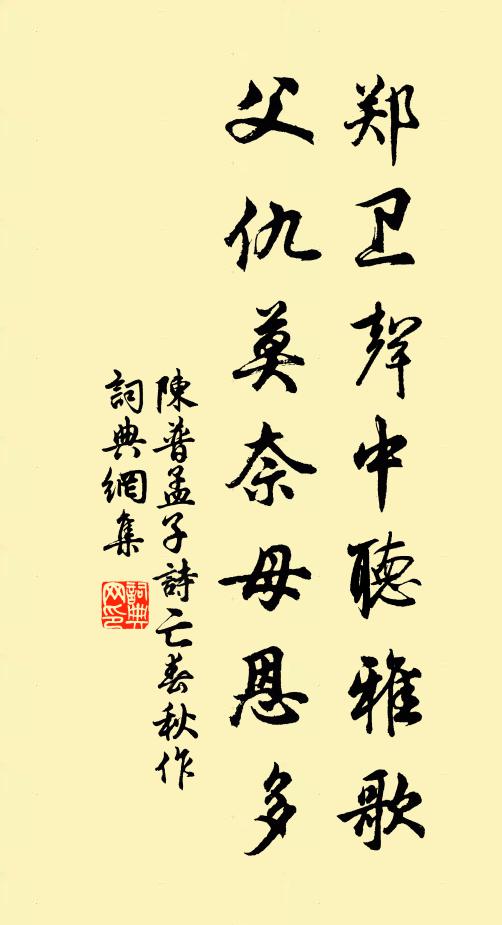 郑卫聲中聽雅歌
父仇莫奈母恩多
陳普孟子詩亡春秋作
詞典網集
詞典
网印